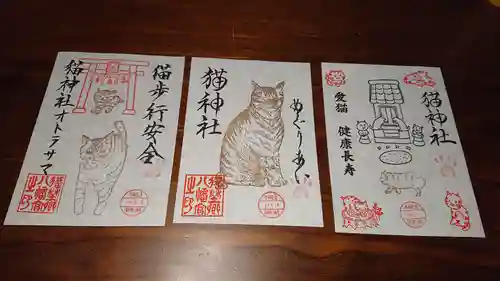 猫歩行安全
猫神社オトラサマ
八幡宮
猫神社
めぐりあい
八幡宮
猫神社
愛猫
健康長寿